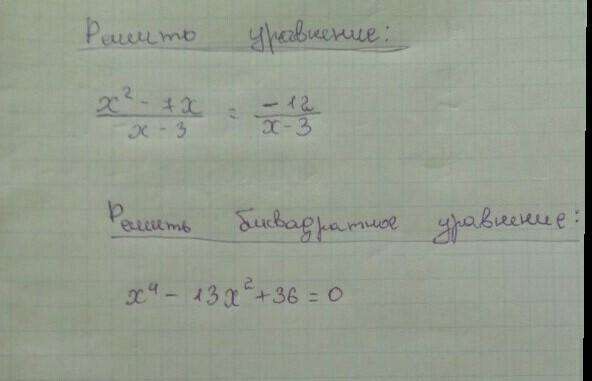 Решить уравнение:
x² - 7x / x - 3 = -12 / x - 3
Решить биквадратное уравнение:
x⁴ - 13x² + 36 = 0